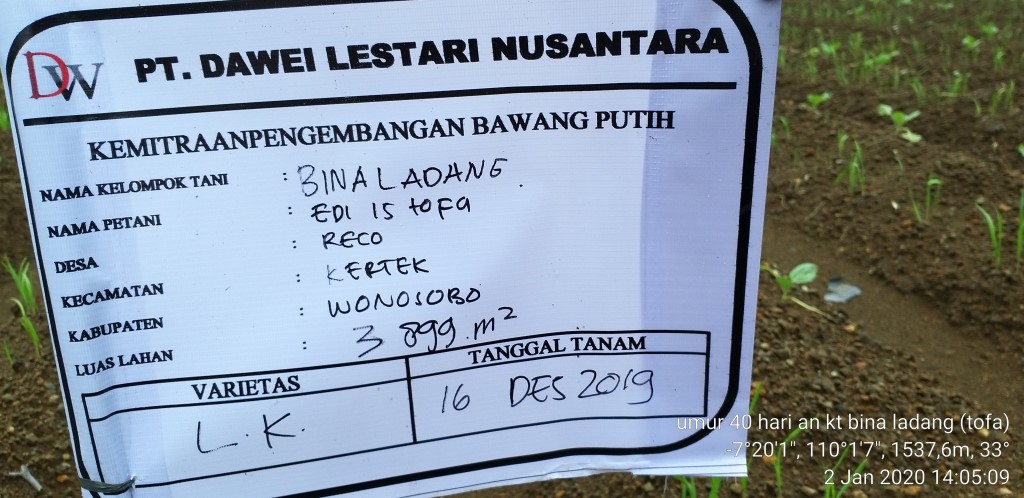 DW PT. DAWEI LESTARI NUSANTARA
KEMITRAANPENGEMBANGAN BAWANG PUTIH
NAMA KELOMPOK TANI : BINA LADANG
NAMA PETANI : EDI IStofa
DESA : RECO
KECAMATAN : KERTEK
KABUPATEN : WONOSOBO
LUAS LAHAN : 3 899 m²
VARIETAS TANGGAL TANAM
L.K. 16 DES 2019
umur 40 hari an kt bina ladang (tofa)
-7°20'1", 110°1'7", 1537,6m, 33°
2 Jan 2020 14:05:09